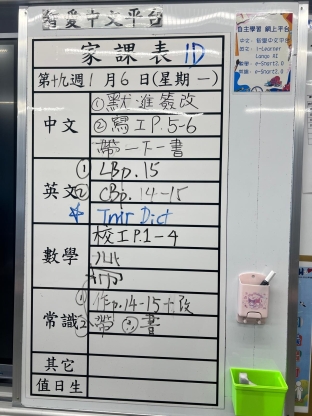 智愛中文平台
家課表 1D
第十九週 1月6日(星期一)
中文
①默進簽改
②寫工P.5-6
帶一下一書
英文
① LBp.15
② CBp.14-15
☆ Tmr Dict
數學
校工P.1-4
常識
① 作p.14-15+改
② 帶 書
其它
值日生
自主學習 網上平台
中文: 智愛中文平台
英文: i-Learner
數學: e-Smart2.0
常識: e-Smart2.0